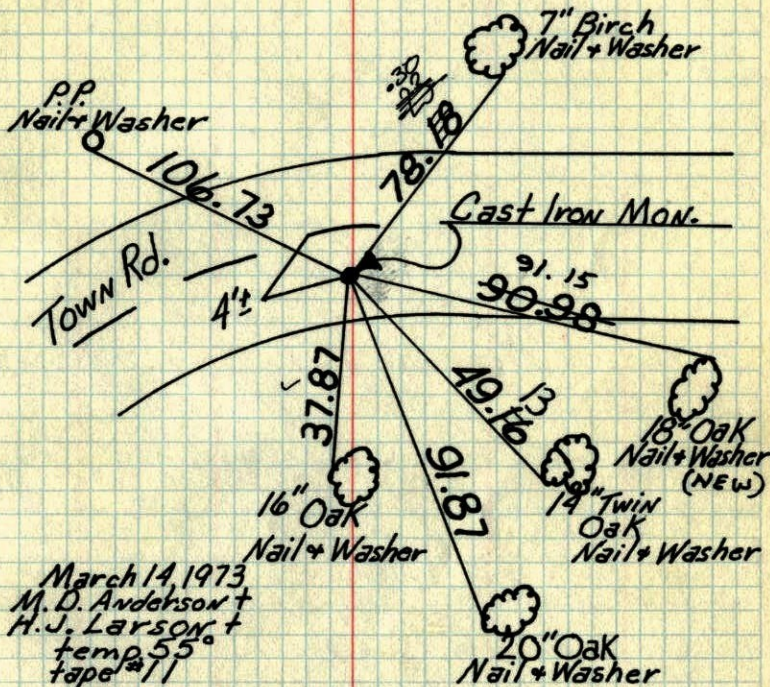 7" Birch
Nail + Washer
P.P.
Nail + Washer
.30
78.18
106.73
Cast Iron Mon.
Town Rd.
91.15
90.98
4'±
37.87
13
49.16
91.87
18" Oak
Nail + Washer
(NEW)
16" Oak
Nail + Washer
14" Twin
Oak
Nail + Washer
20" Oak
Nail + Washer
March 14, 1973
M. D. Anderson +
H. J. Larson +
temp. 55°
tape #11